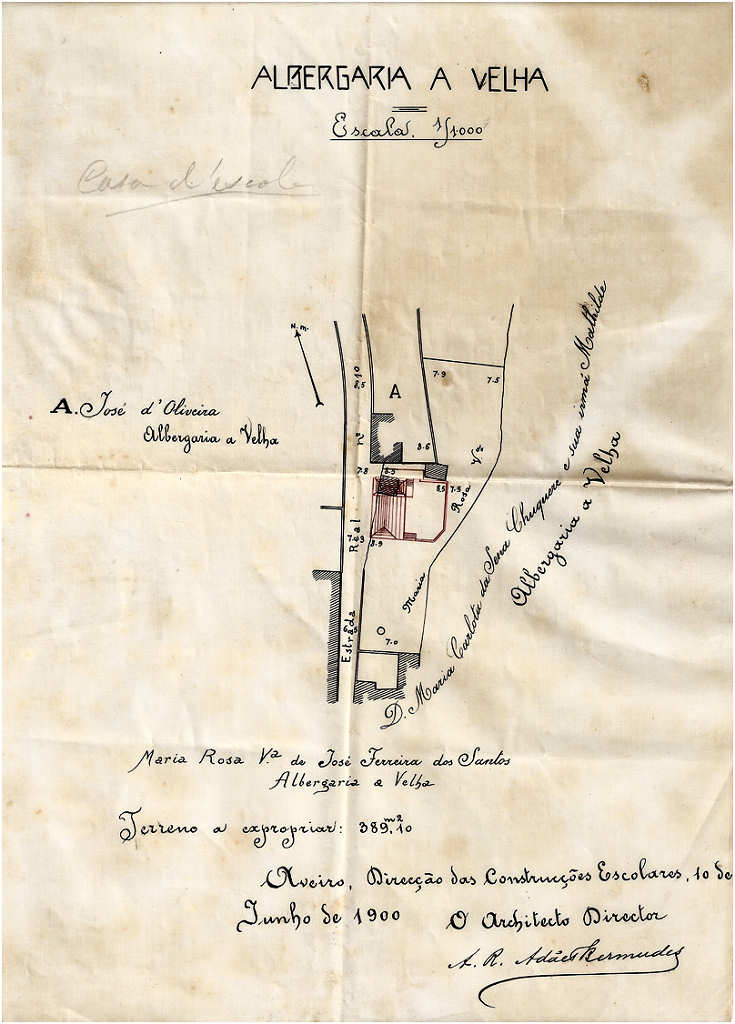 ALBERGARIA A VELHA
Escala. 1/1000
Casa d'escola
N. m.
A. José d'Oliveira
Albergaria a Velha
A
7.9
7.5
8.5
8.6
7.8
8.5
8.5
7.5
8.9
7.0
Estrada Real nº 10
Maria Rosa Vª
D. Maria Carlota da Sena Chuquere e sua irmã Mathilde
Albergaria a Velha
Maria Rosa V.ª de José Ferreira dos Santos
Albergaria a Velha
Terreno a expropriar: 389,m²10
Aveiro, Direcção das Construcções Escolares, 10 de
Junho de 1900
O Architecto Director
A. R. Adães Bermudes